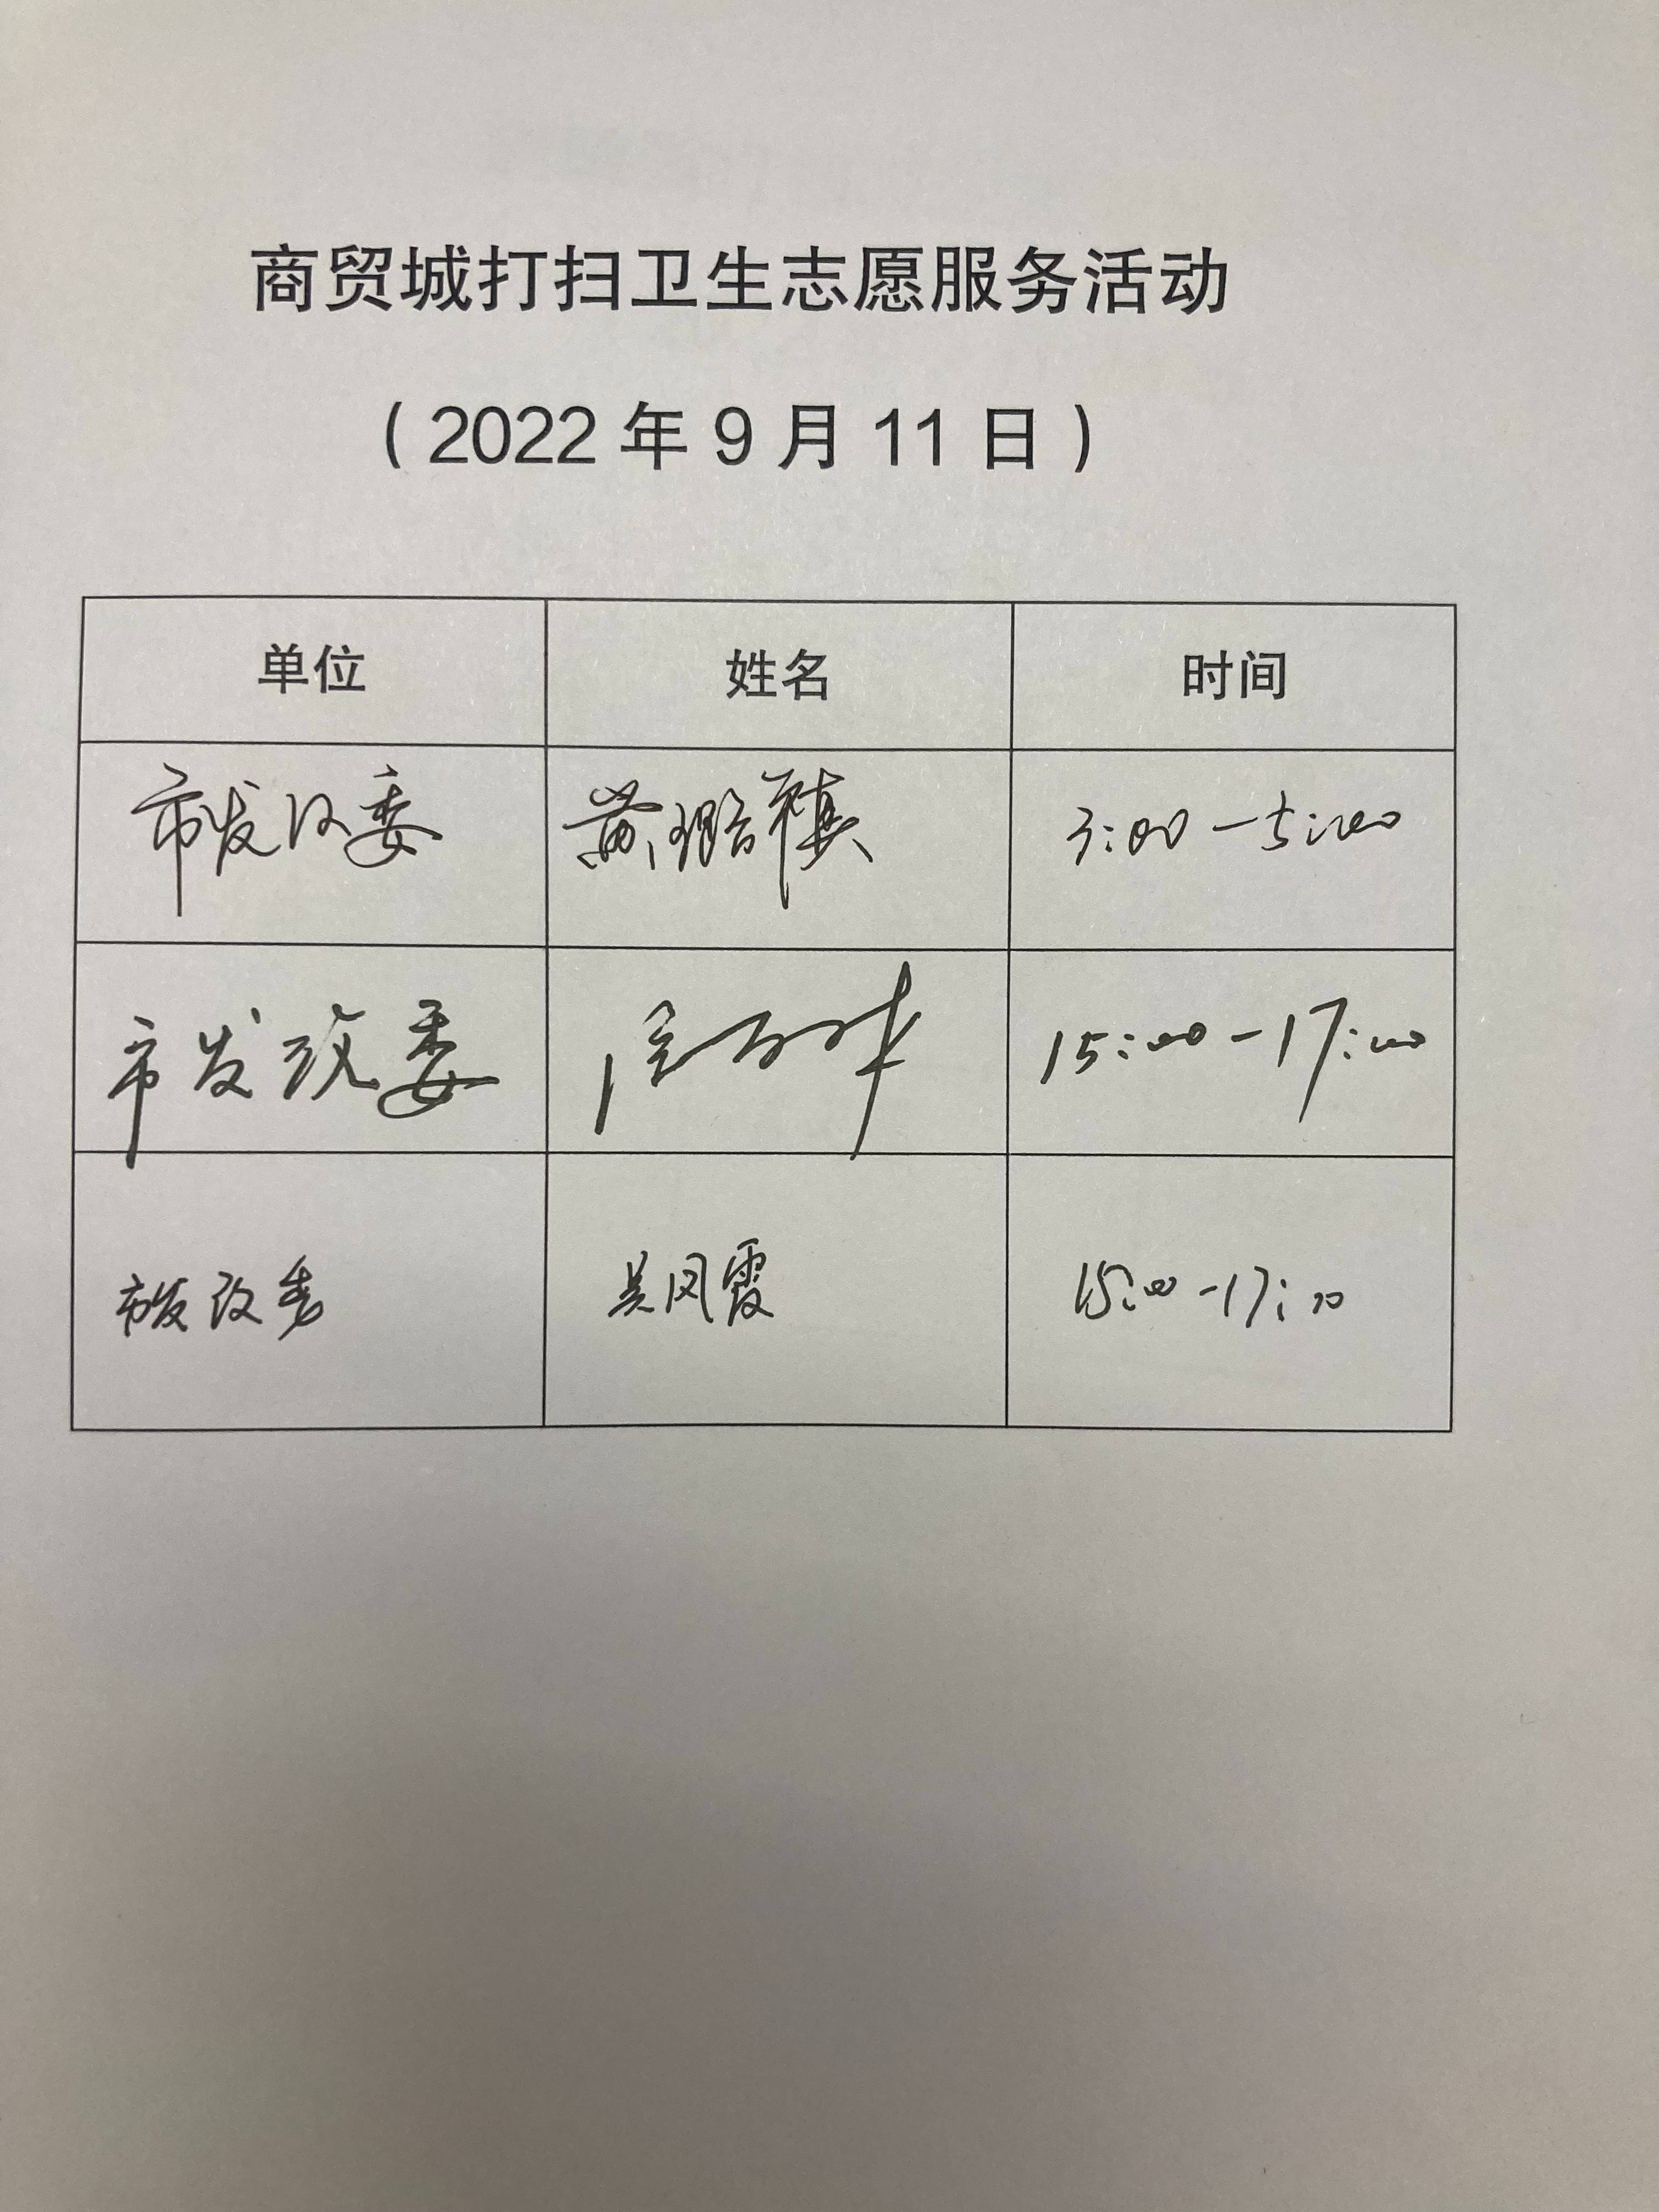 商贸城打扫卫生志愿服务活动
（2022年9月11日）
单位 姓名 时间
市发改委 黄璐禛 3:00-5:00
市发改委 15:00-17:00
市发改委 吴凤霞 15:00-17:00